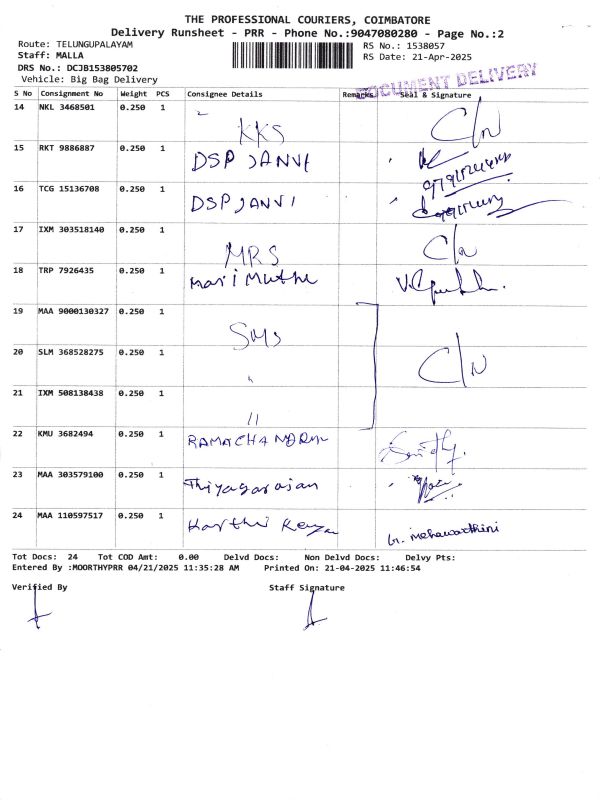 THE PROFESSIONAL COURIERS, COIMBATORE
Delivery Runsheet - PRR - Phone No.:9047080280 - Page No.:2
Route: TELUNGUPALAYAM RS No.: 1538057
Staff: MALLA RS Date: 21-Apr-2025
DRS No.: DCJB153805702
Vehicle: Big Bag Delivery
DOCUMENT DELIVERY
S No Consignment No Weight PCS Consignee Details Remarks Seal & Signature
14 NKL 3468501 0.250 1 KKS C/N
15 RKT 9886887 0.250 1 DSP JANVI
16 TCG 15136708 0.250 1 DSP JANVI
17 IXM 303518140 0.250 1 MRS C/N
18 TRP 7926435 0.250 1 Mari Muthu
19 MAA 9000130327 0.250 1 SMS
20 SLM 368528275 0.250 1 " C/N
21 IXM 508138438 0.250 1 "
22 KMU 3682494 0.250 1
23 MAA 303579100 0.250 1 Thiyagarajan
24 MAA 110597517 0.250 1 Karthi
Tot Docs: 24 Tot COD Amt: 0.00 Delvd Docs: Non Delvd Docs: Delvy Pts:
Entered By :MOORTHYPRR 04/21/2025 11:35:28 AM Printed On: 21-04-2025 11:46:54
Verified By Staff Signature